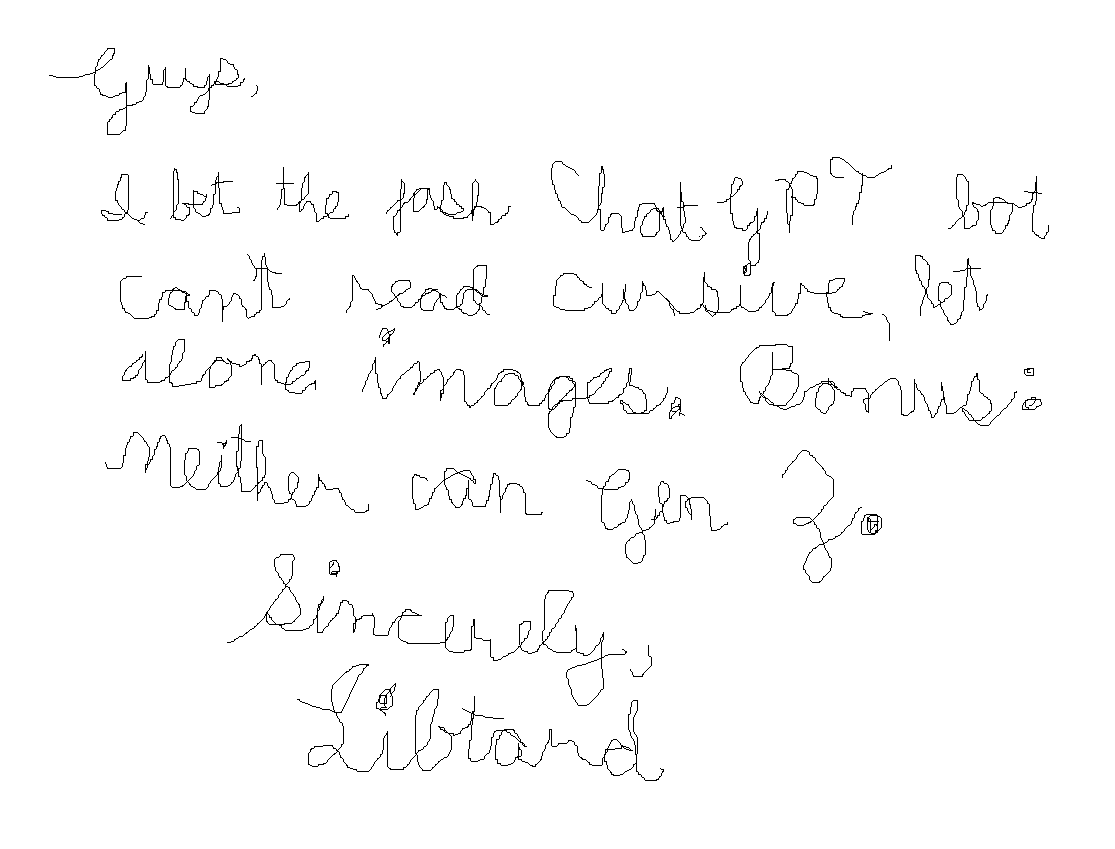 Guys,
I bet the fash ChatGPT bot
can't read cursive, let
alone images. Bonus:
Neither can Gen Z.
Sincerely,
Libtard